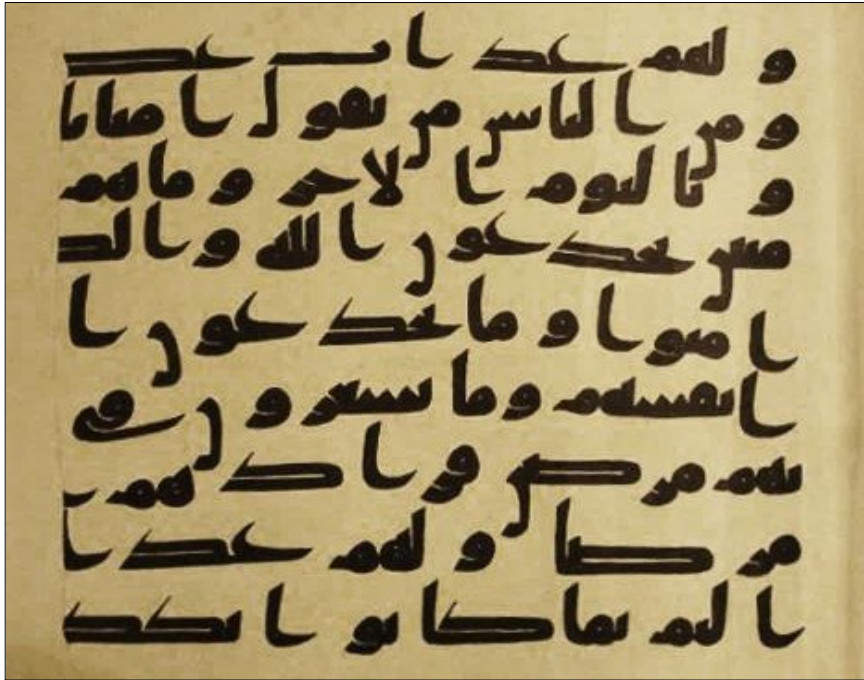 و لهم عذ ا ب عظ
و من ا لنا س من يقو ل ا منا با
و با ليو م ا لا خر و ما هم
منين يخد عو ن ا لله و ا لذ
ا منو ا و ما يخد عو ن ا
ا نفسهم و ما يشعر و ن في
بهم مر ض فز ا د هم ا
مر ضا و لهم عذ ا
ا ليم بما كا نو ا يكذ